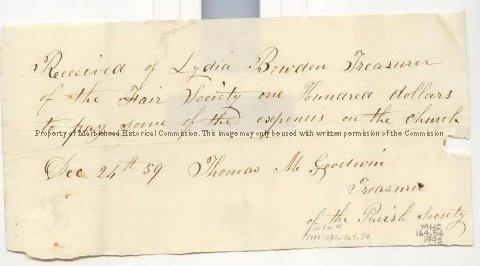 Received of Lydia Bowden Treasurer
of the Fair Society one Hundred dollars
to pay some of the expends on the church
Property of Marblehead Historical Commission. This image may only be used with written permission of the Commission.
Dec 24th 59 Thomas M Goodwin
Treasurer
of the Parish Society
MHC
164.54
1993